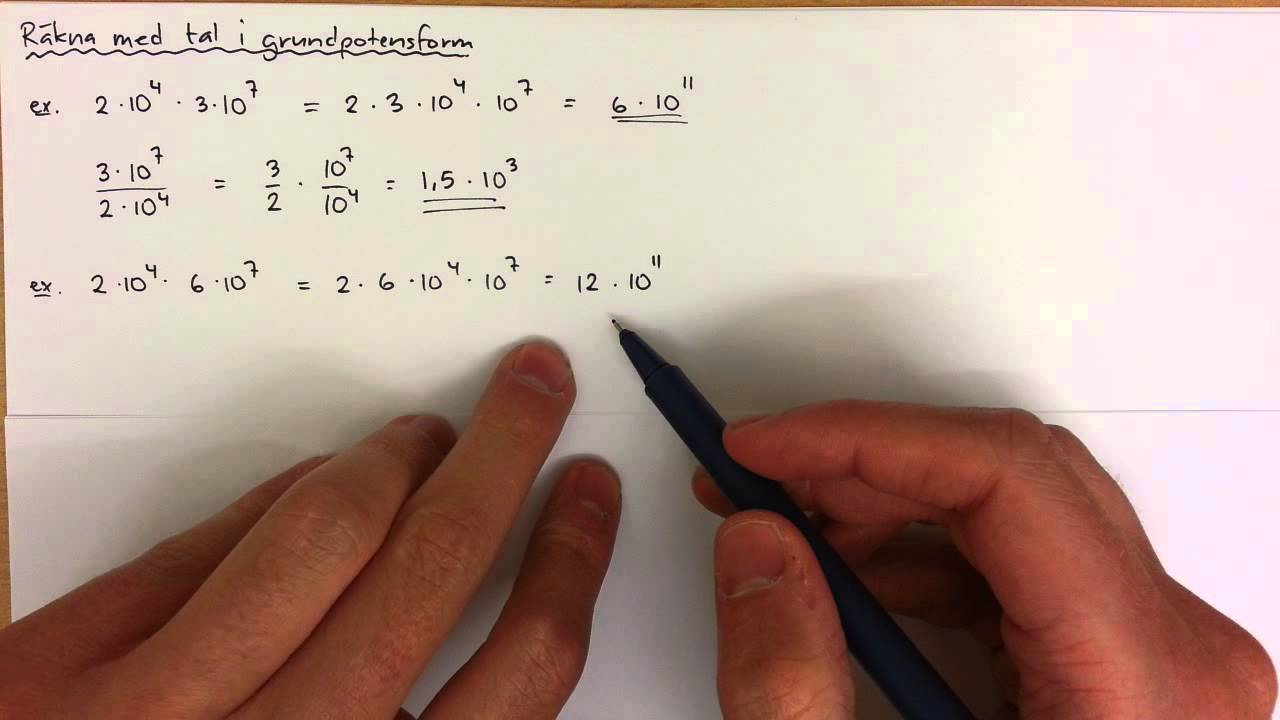 Räkna med tal i grundpotensform
ex. 2·10⁴ · 3·10⁷ = 2 · 3 · 10⁴ · 10⁷ = 6 · 10¹¹
3·10⁷/2·10⁴ = 3/2 · 10⁷/10⁴ = 1,5 · 10³
ex. 2·10⁴ · 6·10⁷ = 2 · 6 · 10⁴ · 10⁷ = 12 · 10¹¹